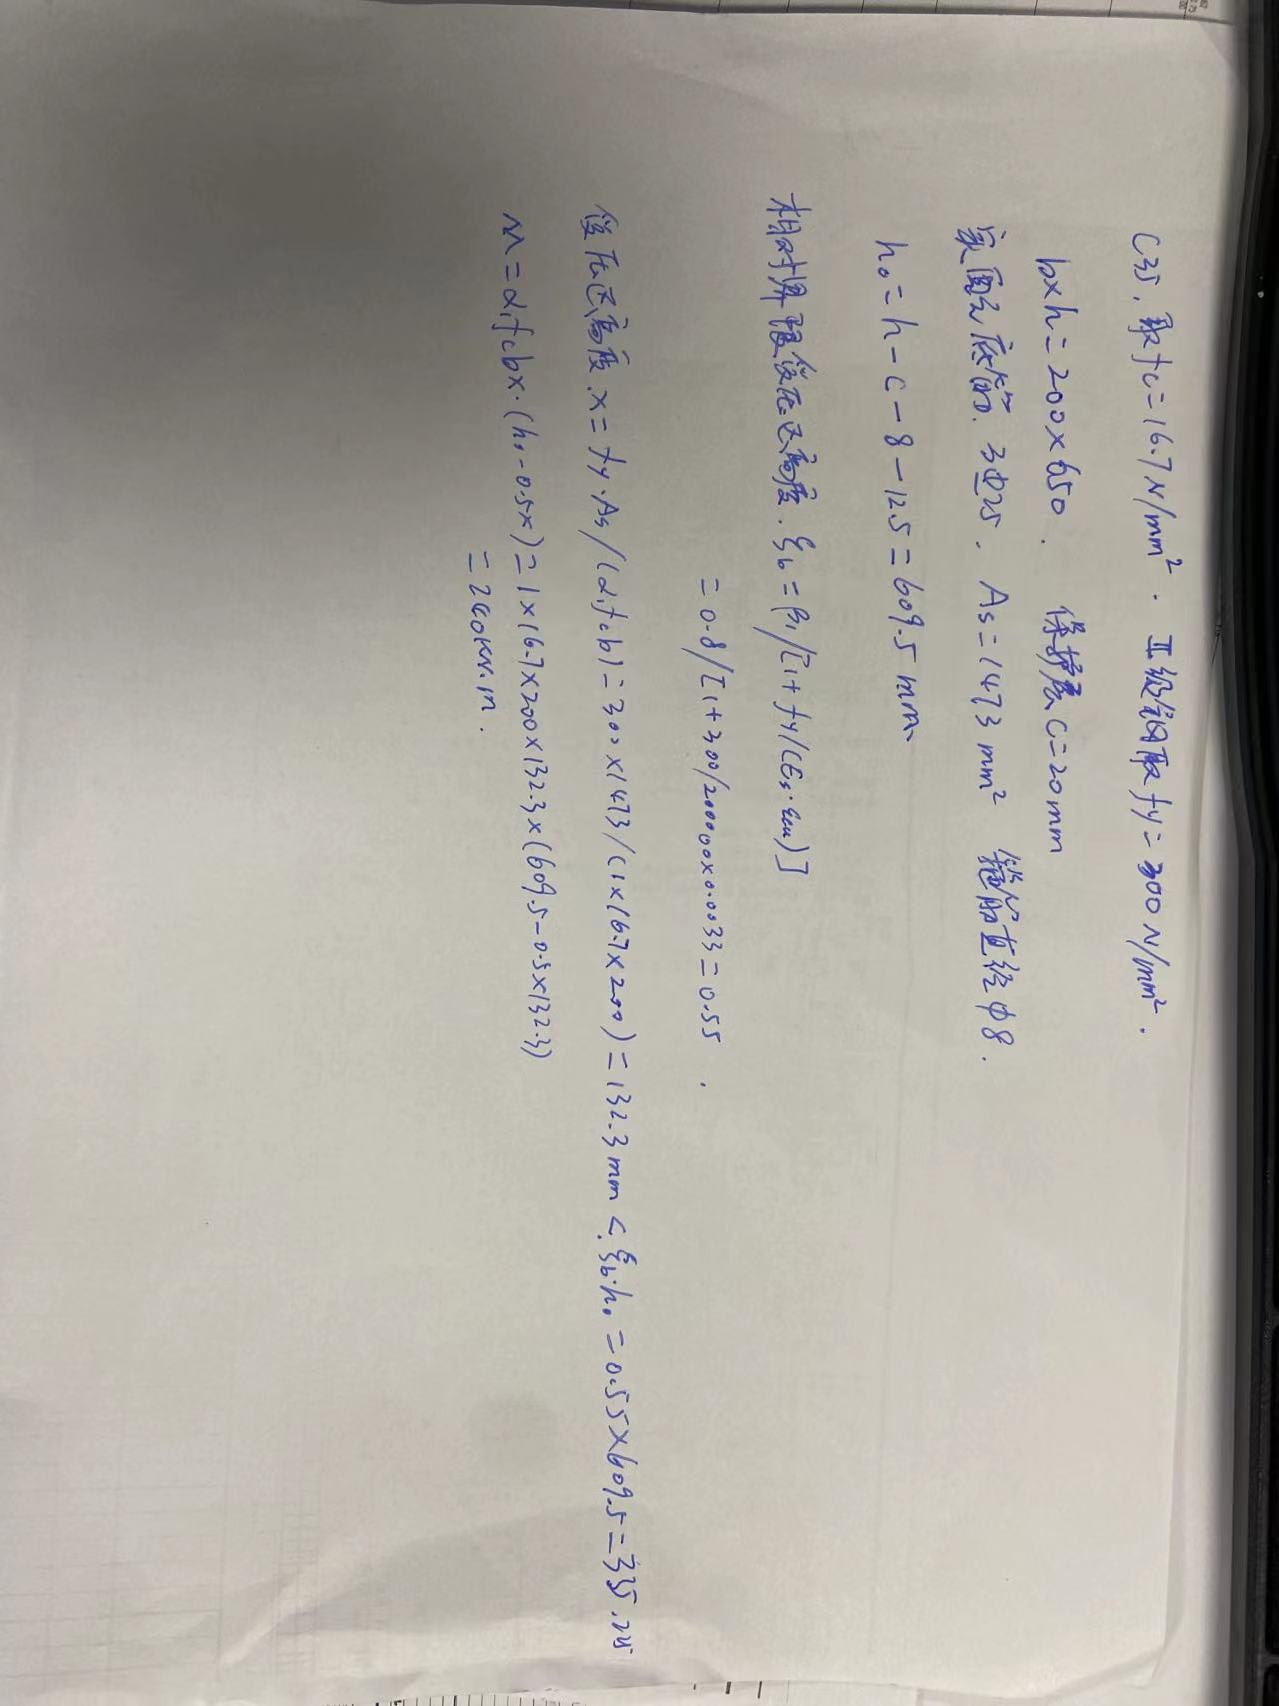 C35,取fc=16.7N/mm². Ⅱ级钢取fy=300N/mm².
b×h=200×650. 保护层C=20mm
梁底筋 3Φ25. As=1473mm² 箍筋直径φ8.
h₀=h-c-8-12.5=609.5mm
相对界限受压区高度.ξb=β₁/[1+fy/(Es·εcu)]
=0.8/[1+300/200000×0.0033=0.55.
受压区高度.x=fy·As/(α₁fcb)=300×1473/(1×16.7×200)=132.3mm<ξb·h₀=0.55×609.5=335.25
M=α₁fcbx·(h₀-0.5x)=1×16.7×200×132.3×(609.5-0.5×132.3)
=240KN.m.